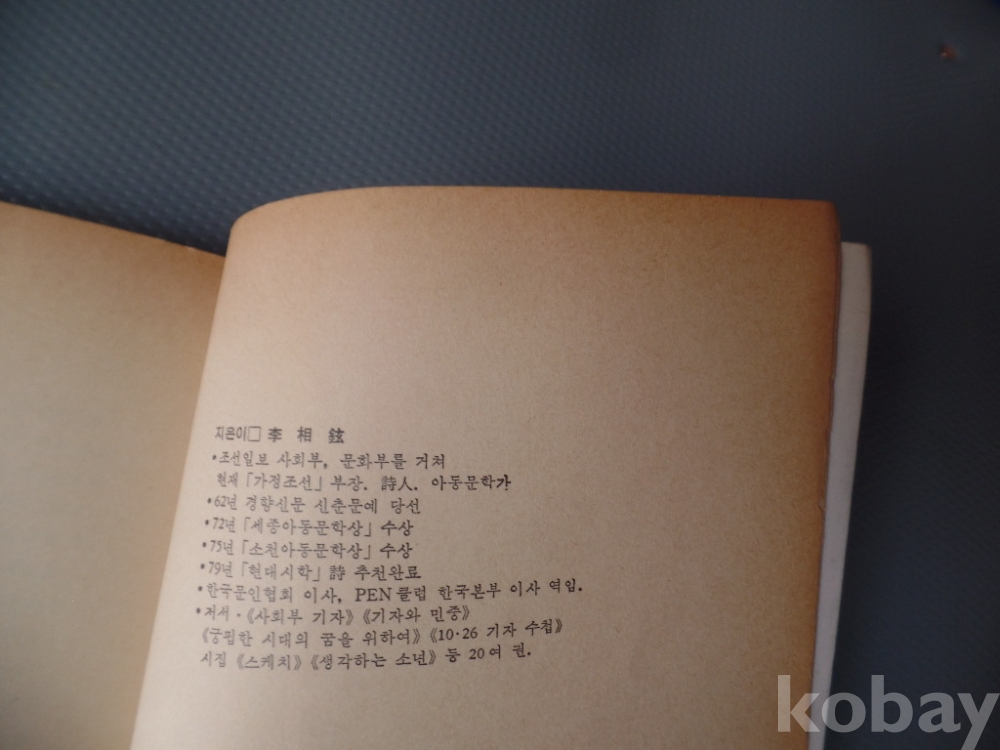 지은이□ 李 相 鉉
•조선일보 사회부, 문화부를 거쳐
현재 「가정조선」 부장. 詩人. 아동문학가
•62년 경향신문 신춘문예 당선
•72년 「세종아동문학상」 수상
•75년 「소천아동문학상」 수상
•79년 「현대시학」 詩 추천완료
•한국문인협회 이사, PEN클럽 한국본부 이사 역임.
•저서·《사회부 기자》《기자와 민중》
《궁핍한 시대의 꿈을 위하여》《10·26 기자 수첩》
시집 《스케치》《생각하는 소년》 등 20여 권.
kobay